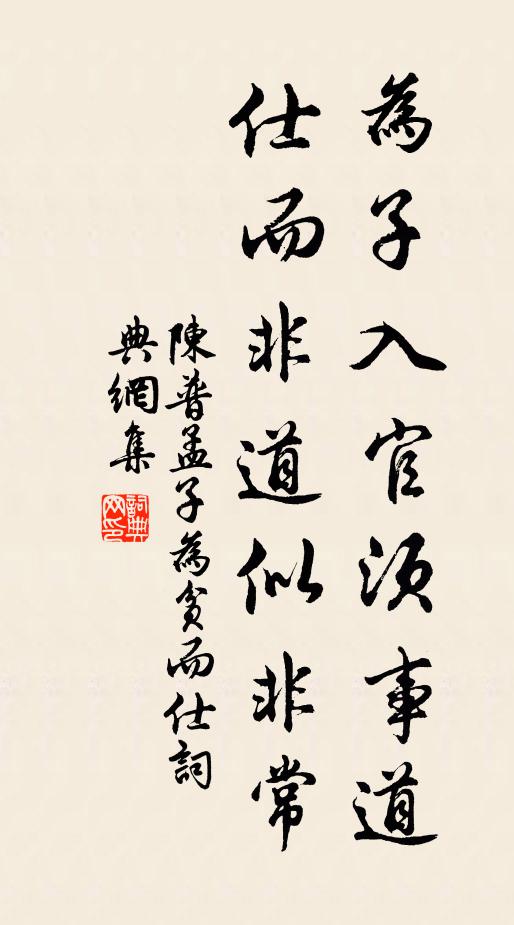 為子入官須事道
仕而非道似非常
陳普孟子為貧而仕詞
典網集
詞典網印